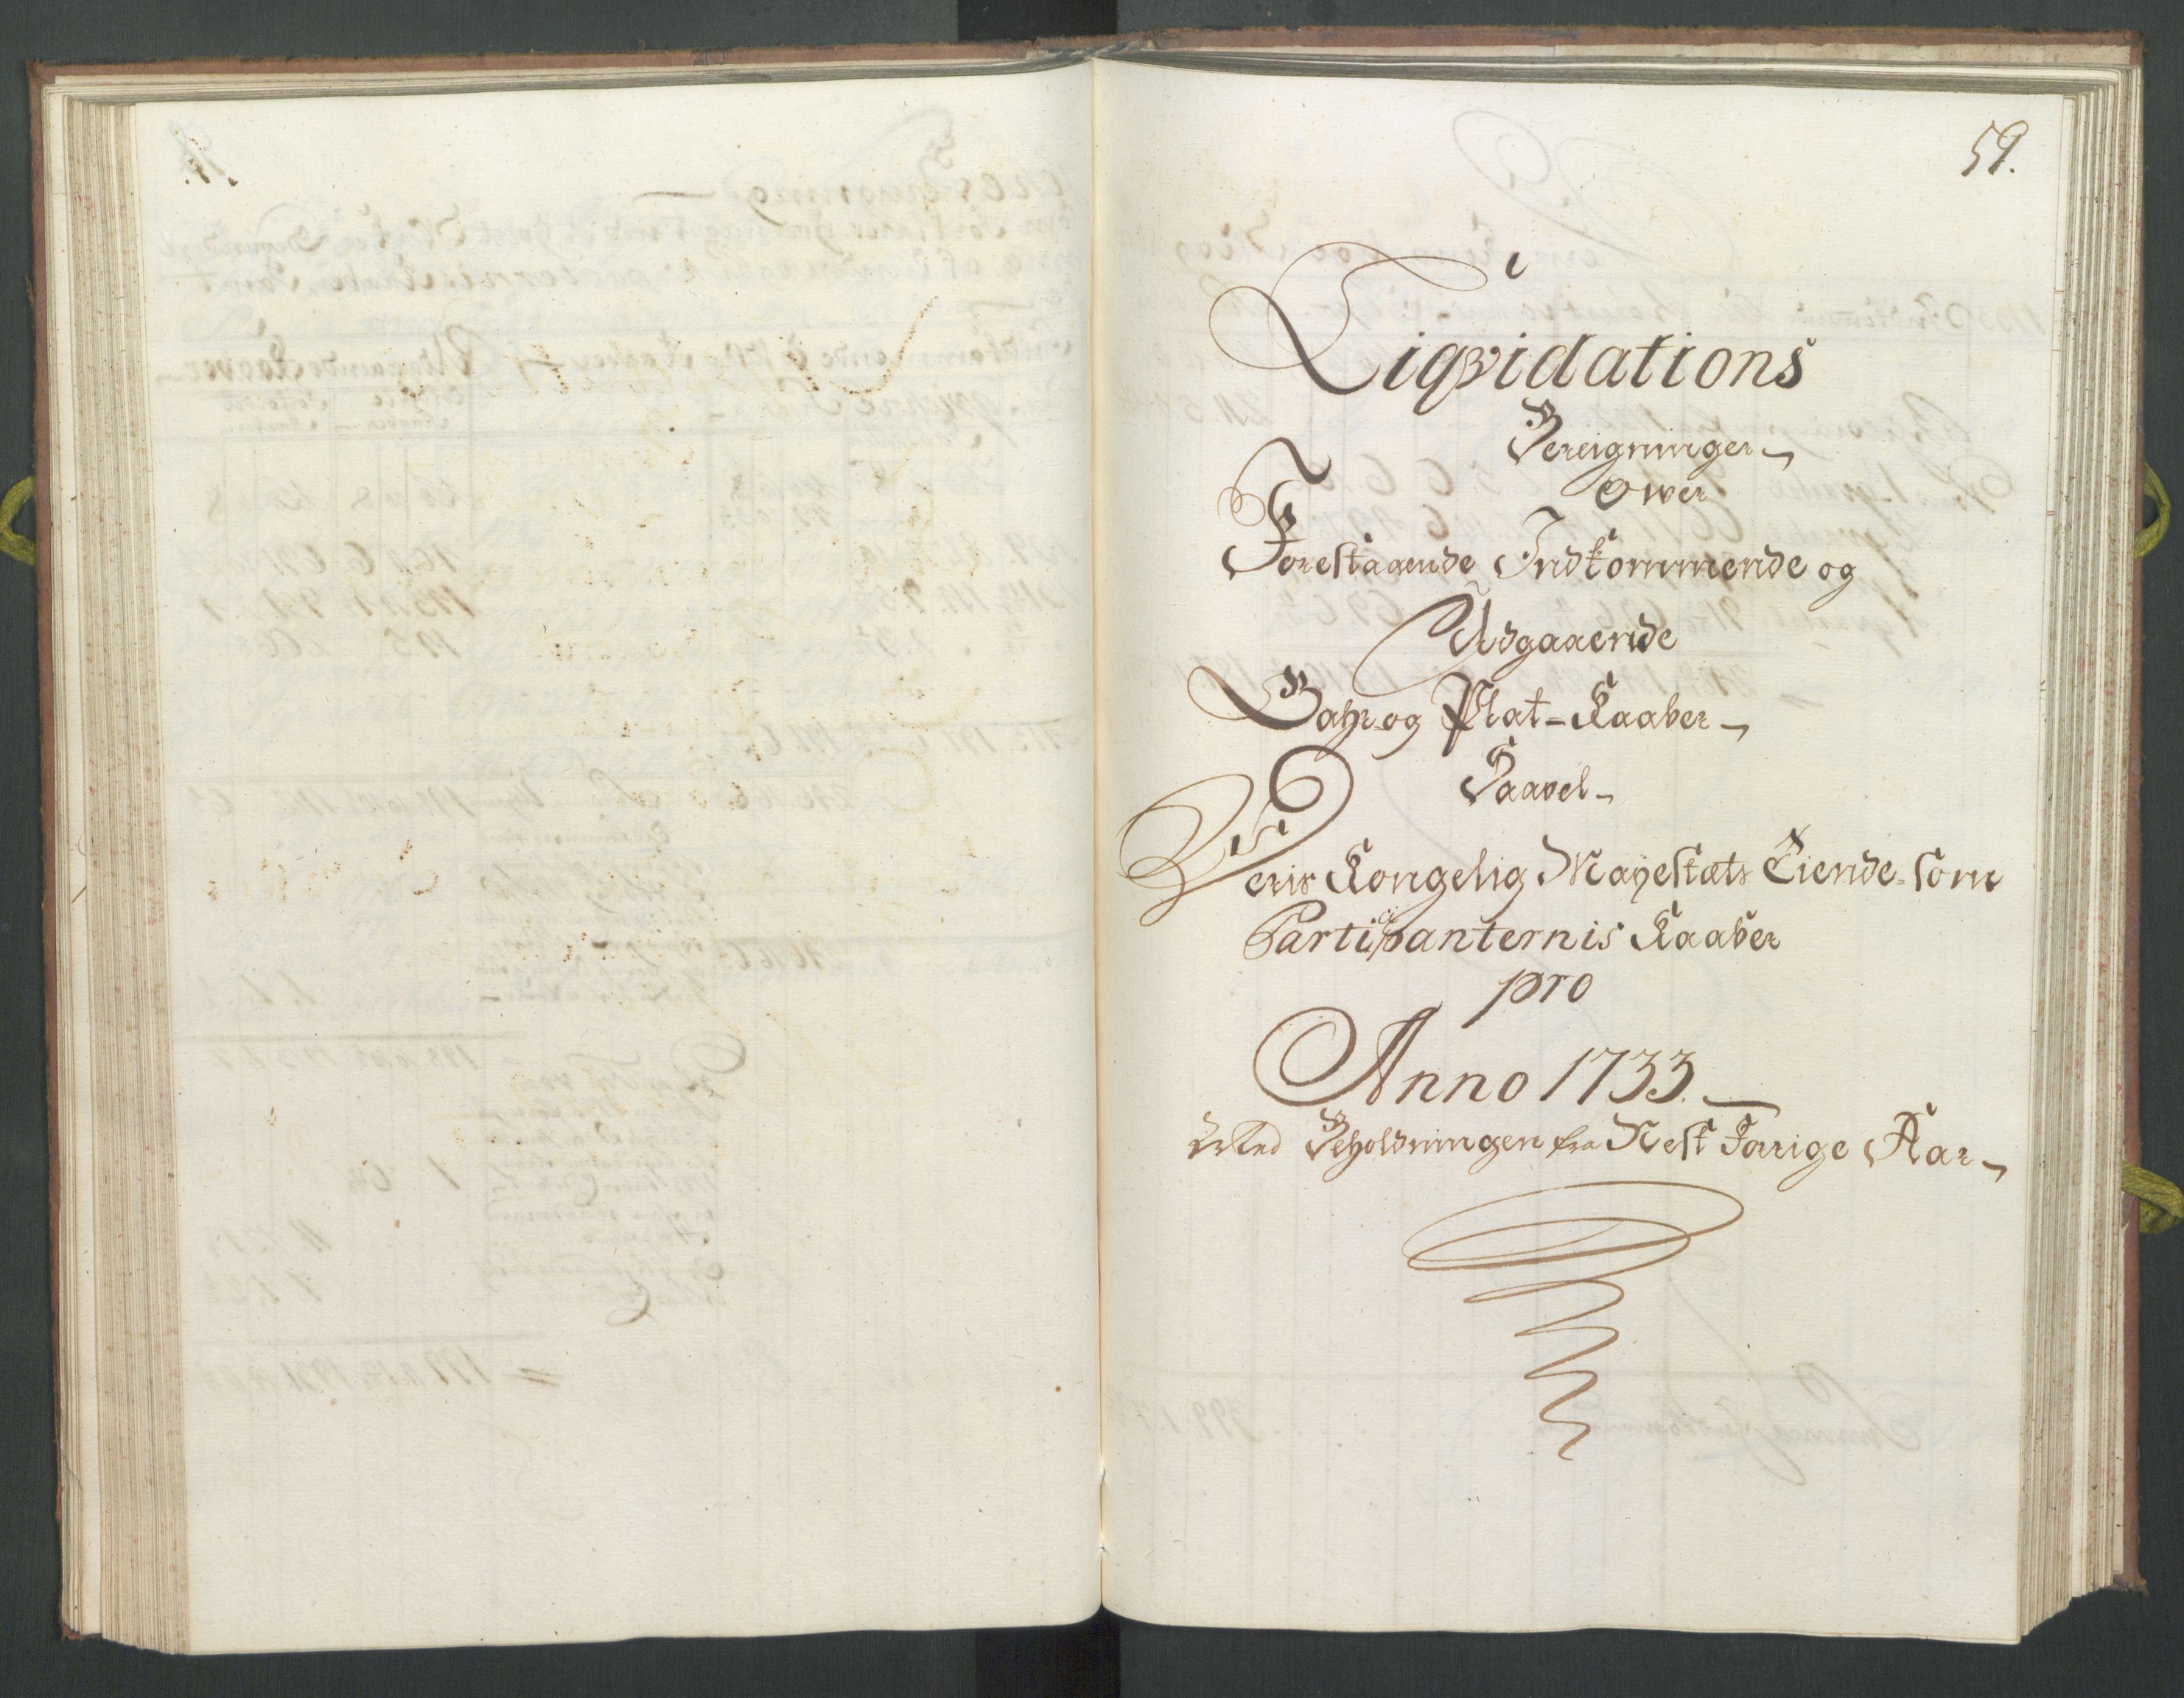 59.
Liqvidations
Bereigninger
Over
Forestaaende Indkommende og
Udgaaende
Gahr og Plat-Kaaber
Saavel
Deris Kongelig Mayestæts Tiende som
Participanternis Kaaber
pro
Anno 1733.
Med Beholdningen fra Nest Forrige Aar